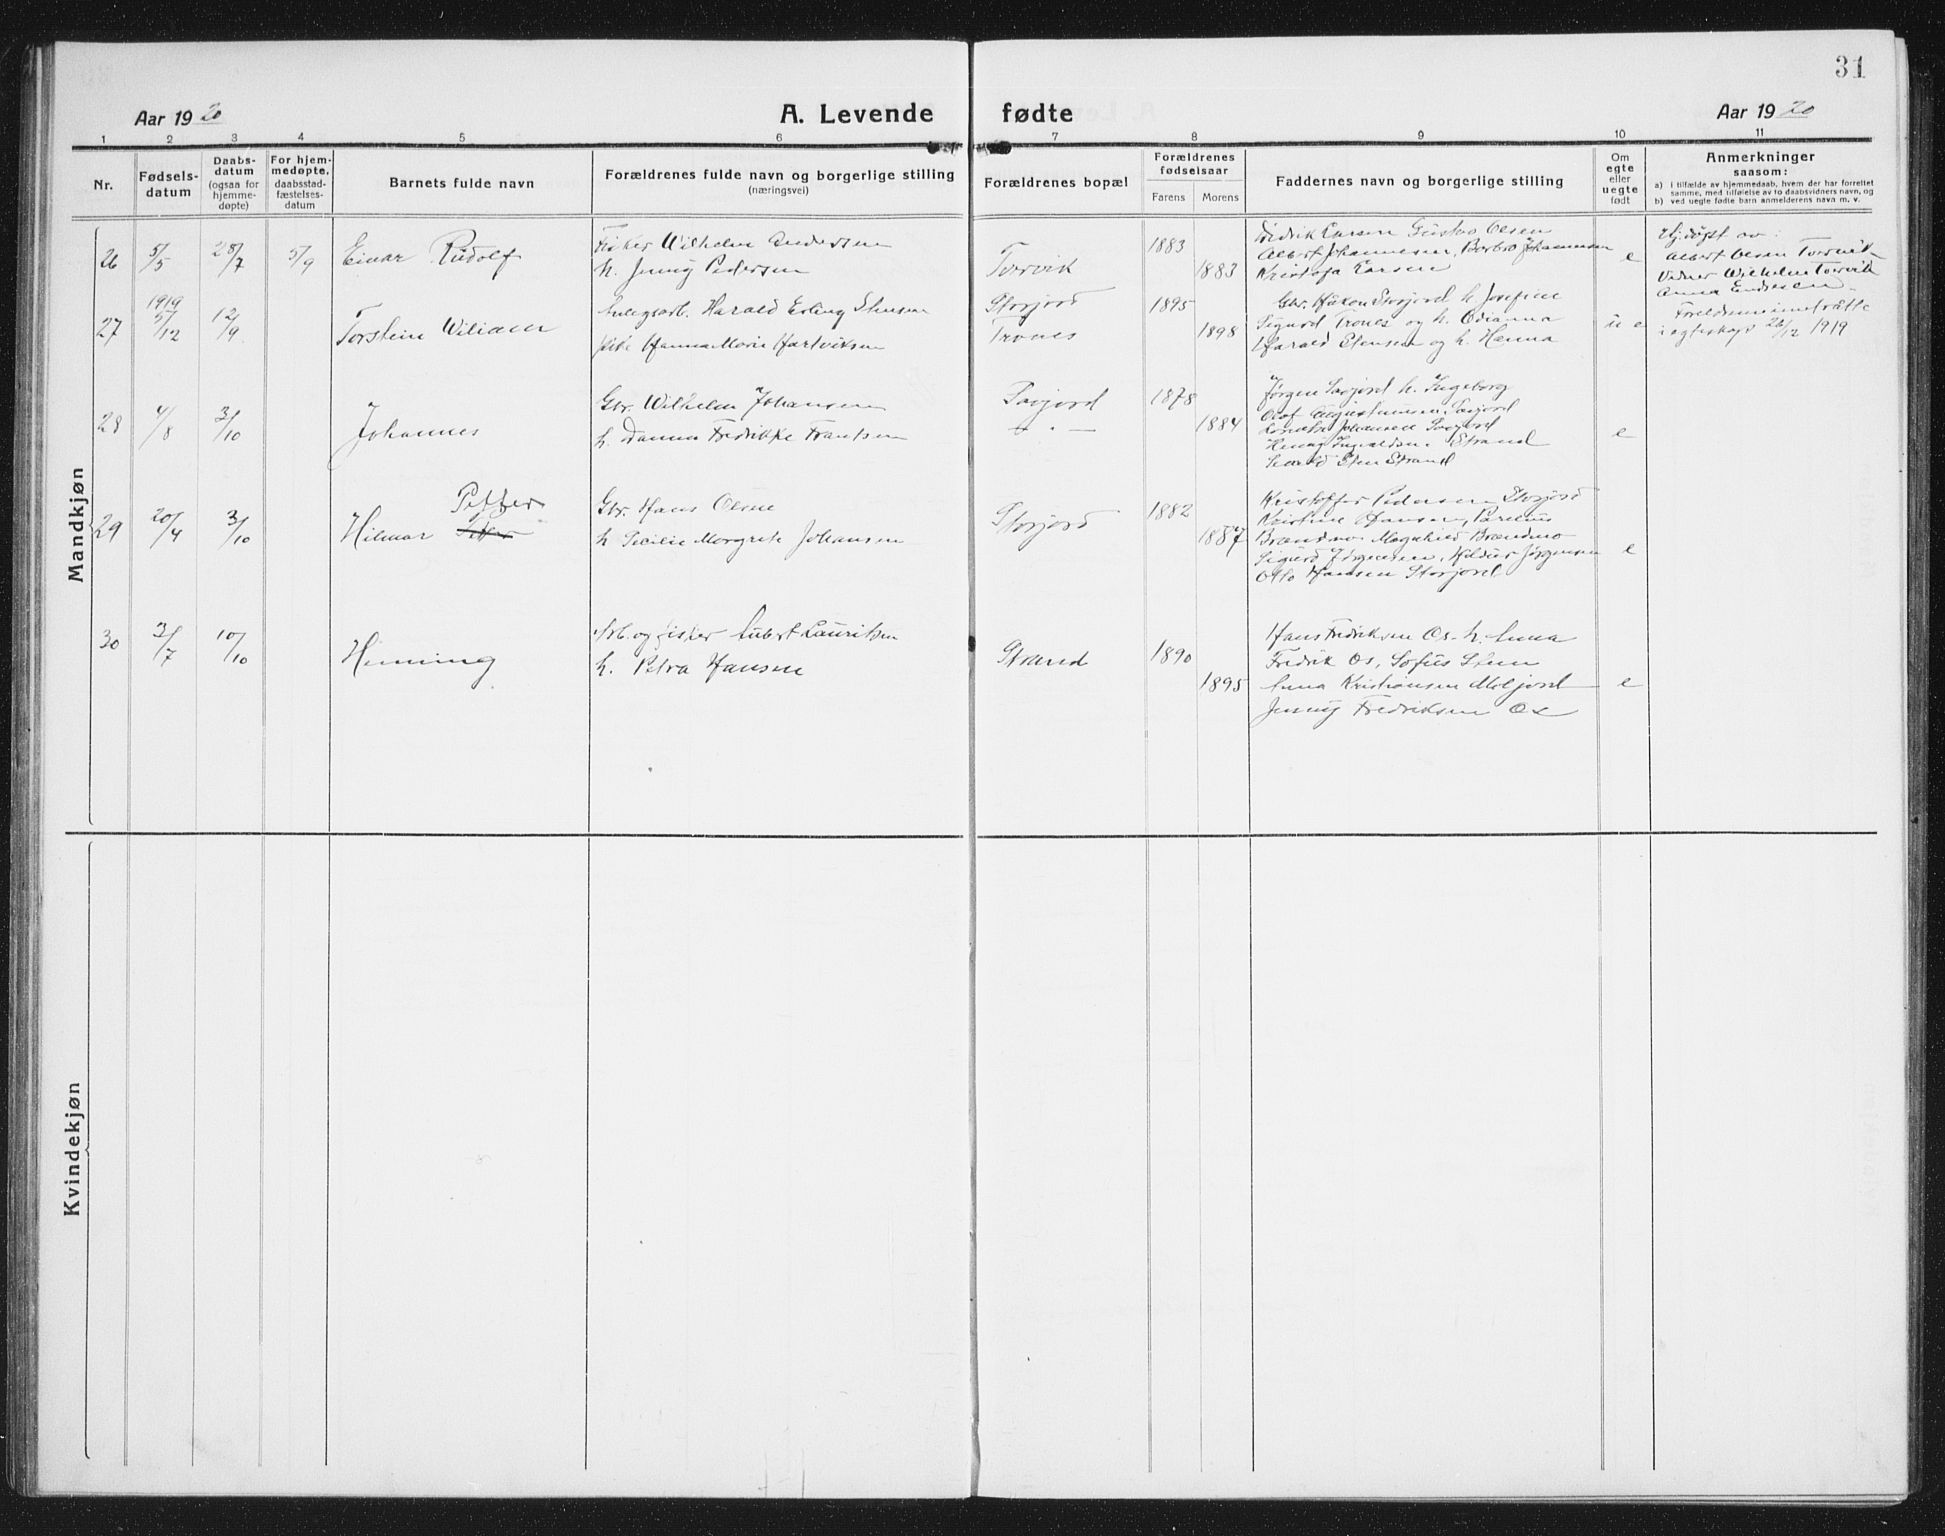 31
Aar 1920 A. Levende fødte Aar 1920
1 2 3 4 5 6 7 8 9 10 11
Nr.
Fødsels-
datum
Daabs-
datum
(ogsaa for
hjemme-
døpte)
For hjem-
medøpte,
daabsstad-
fæstelses-
datum
Barnets fulde navn
Forældrenes fulde navn og borgerlige stilling
(næringsvei)
Forældrenes bopæl
Forældrenes
fødselsaar
Farens Morens
Faddernes navn og borgerlige stilling
Om
egte
eller
uegte
født
Anmerkninger
saasom:
a) i tilfælde av hjemmedaab, hvem der har forrettet
samme, med tilføielse av to daabsvidners navn, og
b) ved uegte fødte barn anmelderens navn m. v.
Mandkjøn
26 5/5 28/7 5/9 Einar Rudolf
Fisker Wilhelm Andersen
h. Jenny Pedersen
Torvik
1883
1883
Fredrik Larsen Gustav Olsen
Albert Johannesen, Borbro Johannesen
Kristofa Larsen
e
Hj.døpt av:
Albert Olsen Torvik
Vidner Wilhelm Torvik
Anna Endresen.
27 1919
5/12 12/9 Torstein Wiliam
Harald Erling Stensen
pike Hanna Marie Hartviksen
Storjord
Trones
1895
1898
Gbr. Håkon Storjord h. Josefine
Sigurd Trones og h. Odianna
Harald Stensen og h. Hanna
u e
i egteskap 26/12 1919
28 4/8 3/10 Johannes
Gbr. Wilhelm Johansen
h. Danna Fredrikke Frantsen
Savjord
— " —
1878
1884
Jørgen Savjord h. Ingeborg
Olaf Augustinussen, Savjord
Johansen Savjord
Henny Ingvaldsen Strand
Sten Strand
e
29 20/4 3/10 Hilmar Petter
Petter
Gbr. Hans Olsen
h Secilie Margrete Johansen
Storjord
1882
1887
Kristoffer Pedersen Storjord
Kristine Hansen, Parelius
Brændmo Magnhild Brændmo
Sigurd Jørgensen, Hildur Jørgensen
Otto Hansen Storjord
e
30 3/7 10/10 Henning
Arb. og fisker Lauritsen
h. Petra Hansen
Strand
1890
1895
Hans Fredriksen Os h. Anna
Fredrik Os, Sofus Sten
Anna Kristiansen Moljord
Jenny Fredriksen Os
e
Kvindekjøn